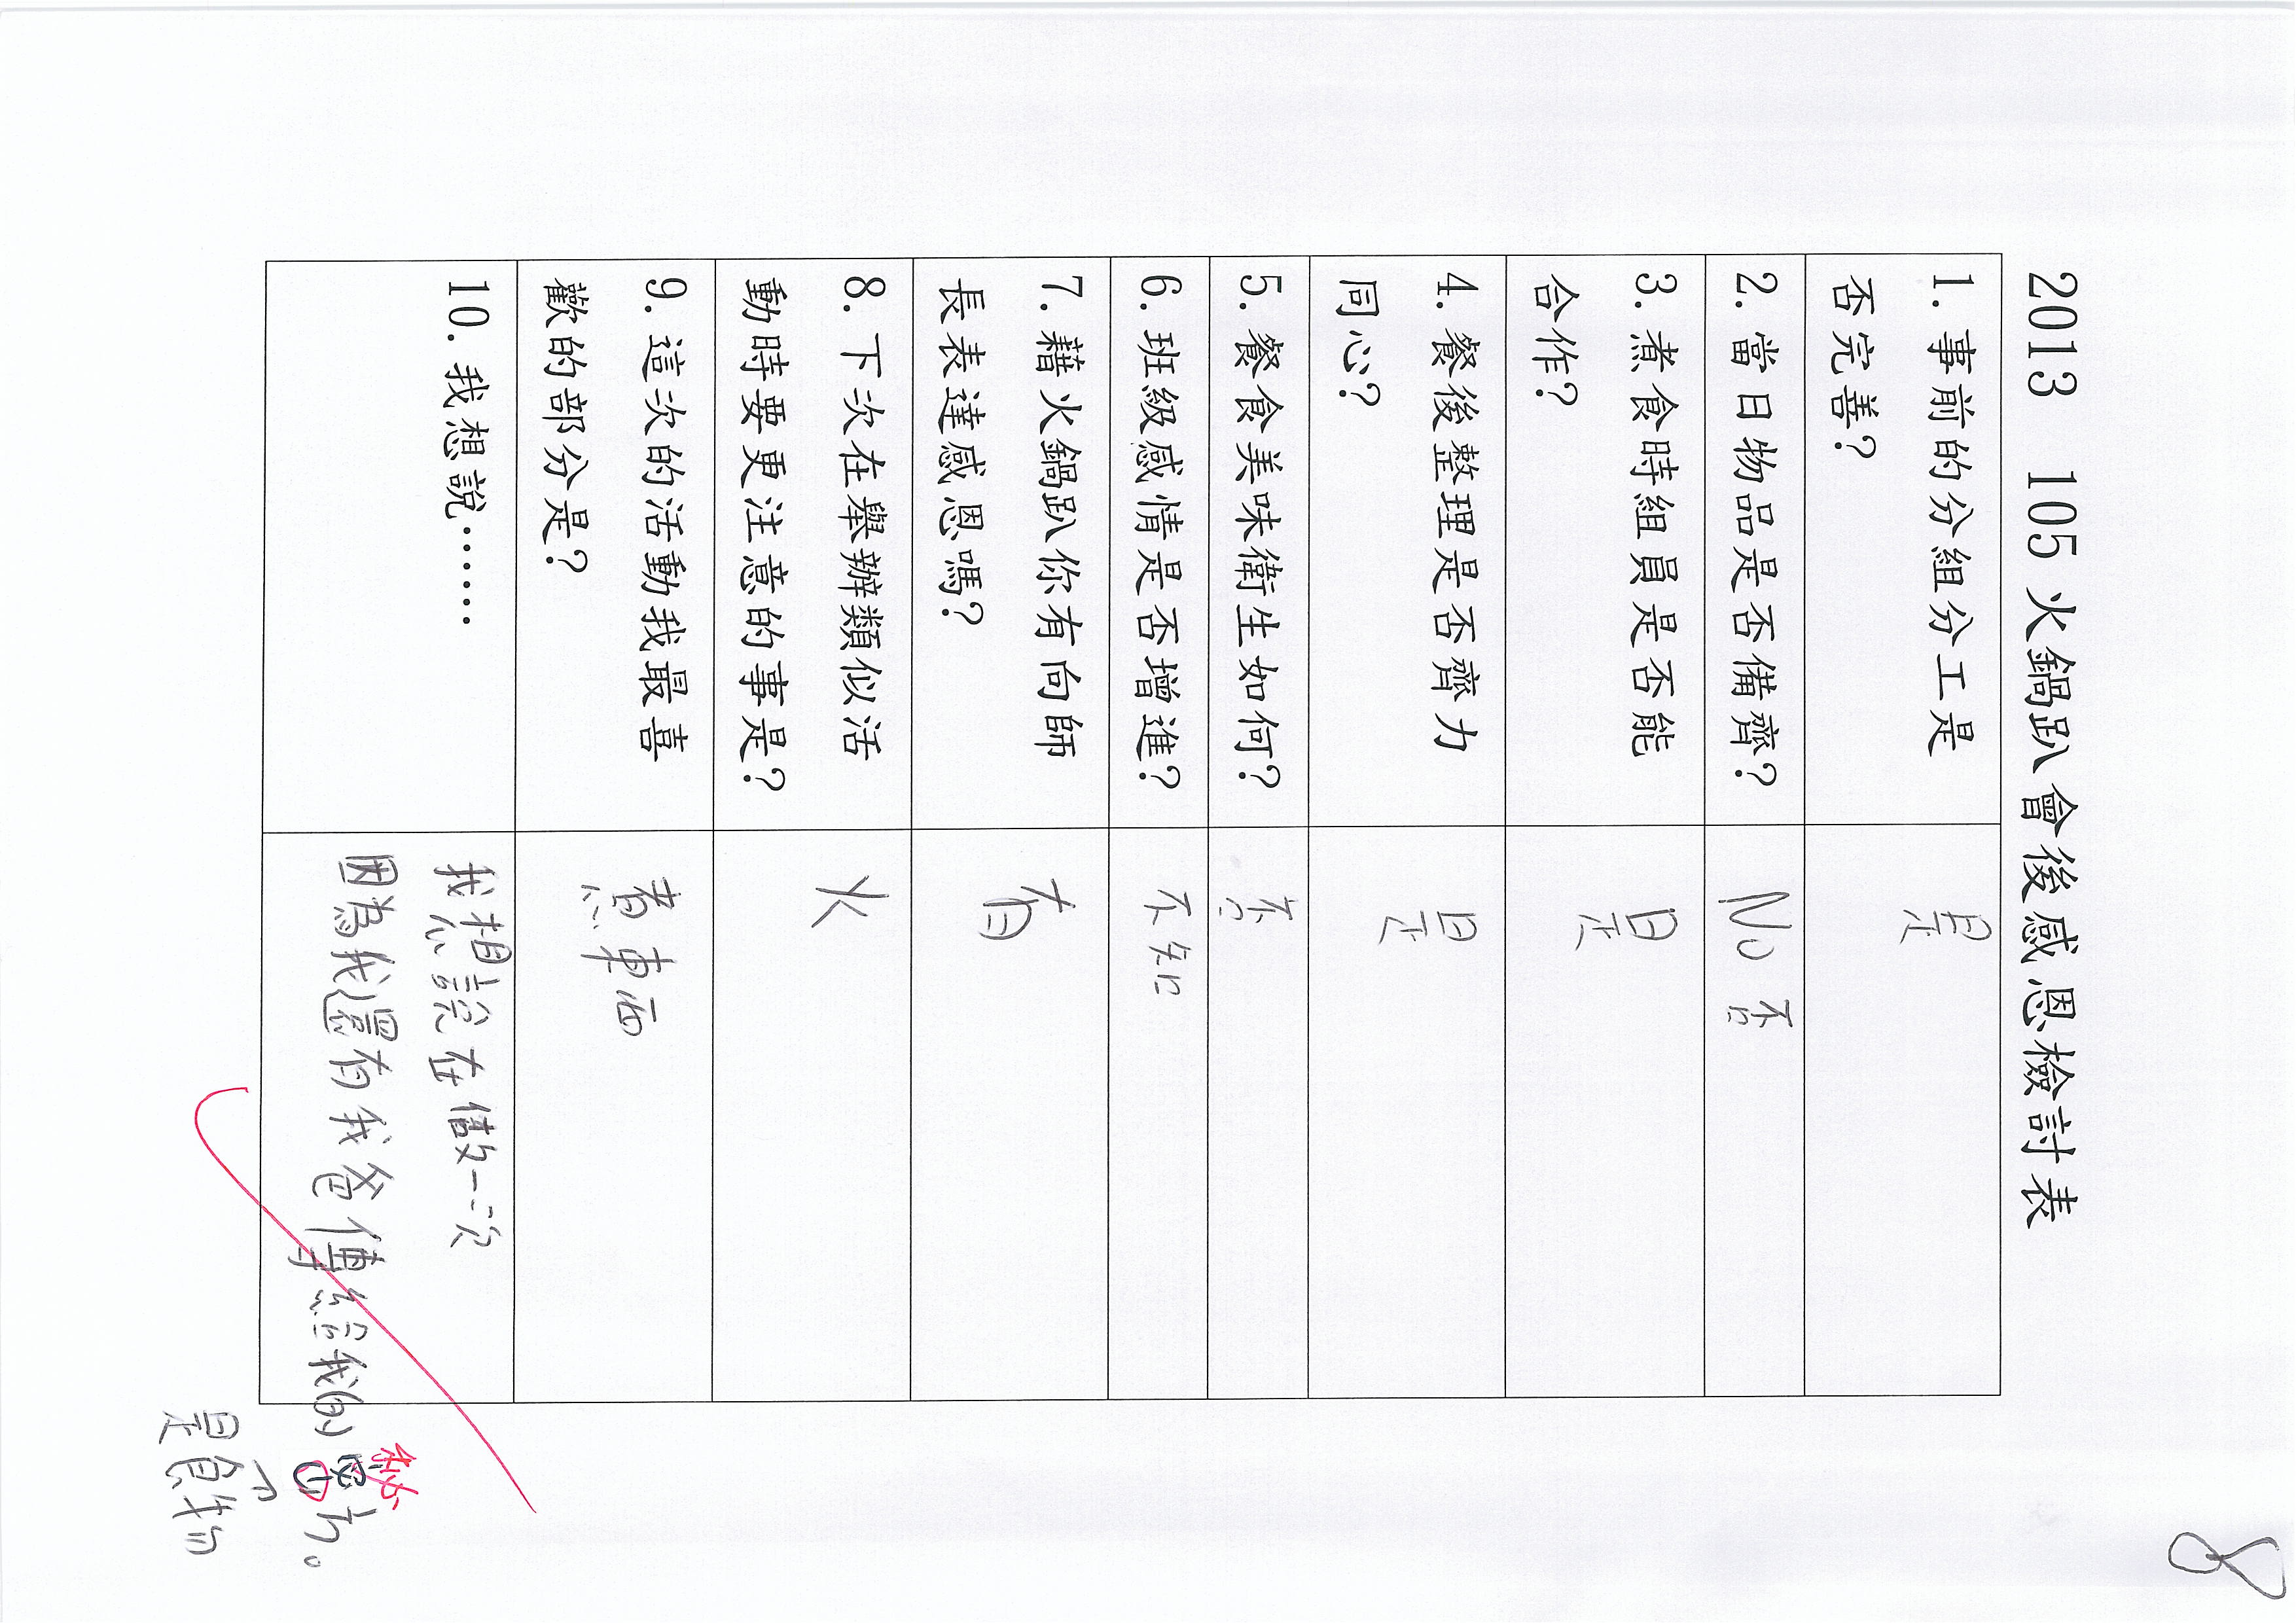 8
2013 105 火鍋趴會後感恩檢討表
1. 事前的分組分工是
否完善?
是
2. 當日物品是否備齊?
No 否
3. 煮食時組員是否能
合作?
是
4. 餐後整理是否齊力
同心?
是
5. 餐食美味衛生如何?
否
6. 班級感情是否增進?
不知
7. 藉火鍋趴你有向師
長表達感恩嗎?
有
8. 下次在舉辦類似活
動時要更注意的事是?
火
9. 這次的活動我最喜
歡的部分是?
煮東西
10. 我想說.......
我想說在做一次
因為我還有我爸傳給我的密方。
秘
是食物